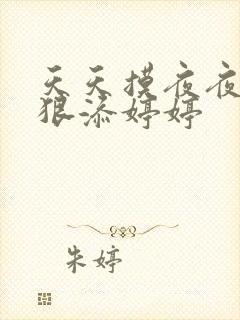 天天摸夜夜
狠添婷婷
朱婷